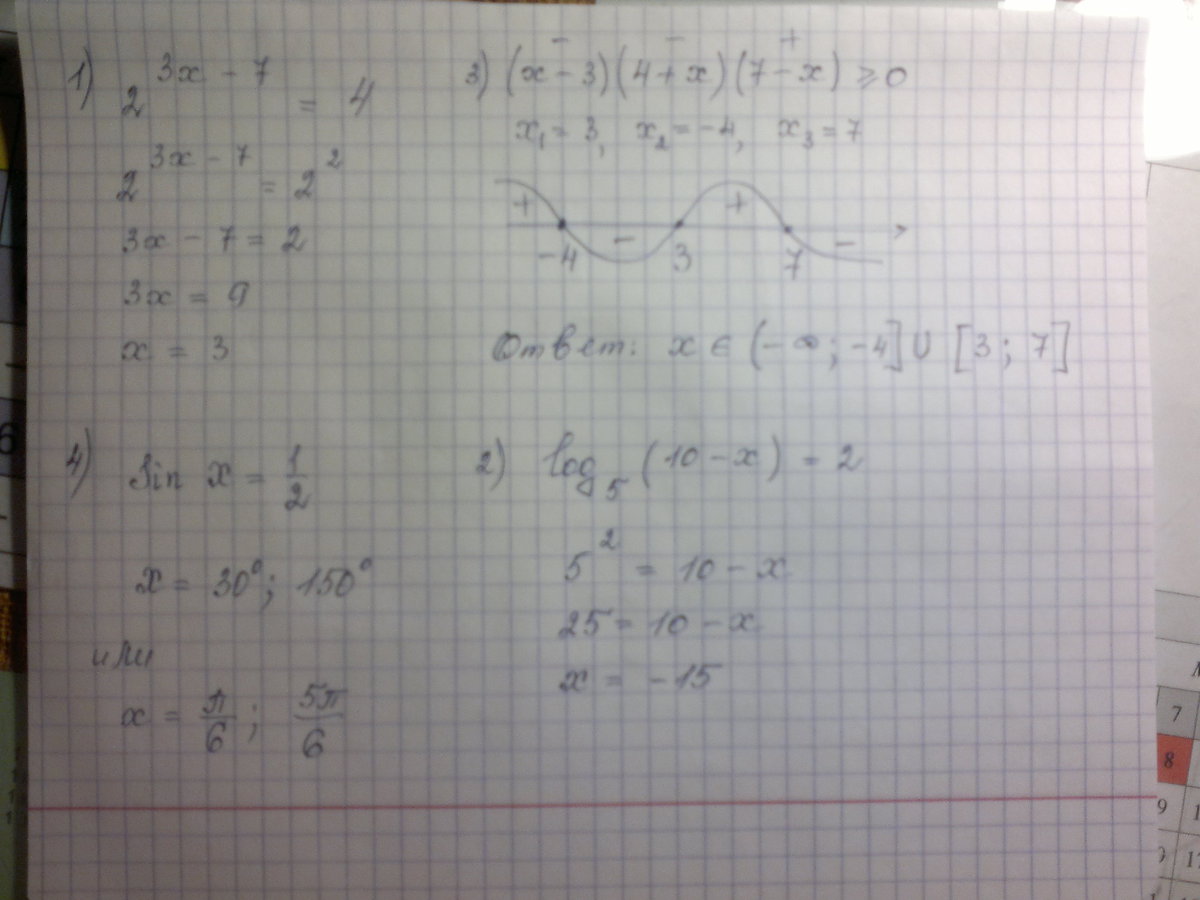 1) 2^{3x - 7} = 4
2^{3x - 7} = 2^2
3x - 7 = 2
3x = 9
x = 3
3) (x - 3)(4 + x)(7 - x) ⩾ 0
- - +
x₁ = 3, x₂ = -4, x₃ = 7
+ - + -
-4 3 7
Ответ: x ∈ (-∞; -4] ∪ [3; 7]
4) Sin x = 1/2
x = 30°; 150°
или
x = π/6; 5π/6
2) log₅ (10 - x) = 2
5^2 = 10 - x
25 = 10 - x
x = -15
6
7
8
9